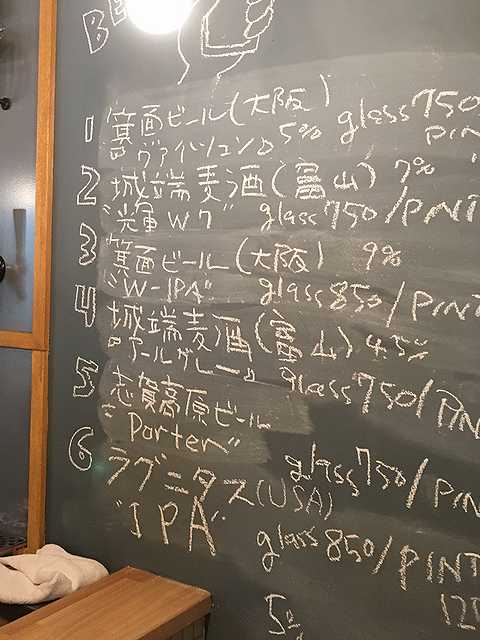 BE
1 箕面ビール(大阪) glass 750
"ヴァイツェン" 5% PIN
2 城端麦酒(富山) 7%
"光輝 W7" glass 750/PINT
3 箕面ビール(大阪) 9%
"W-IPA" glass 850/PINT
4 城端麦酒(富山) 4.5%
"トールグレー" glass 750/PIN
5 志賀高原ビール
"Porter" glass 750/PIN
6 ラグニタス(USA)
"IPA" glass 850/PINT
120